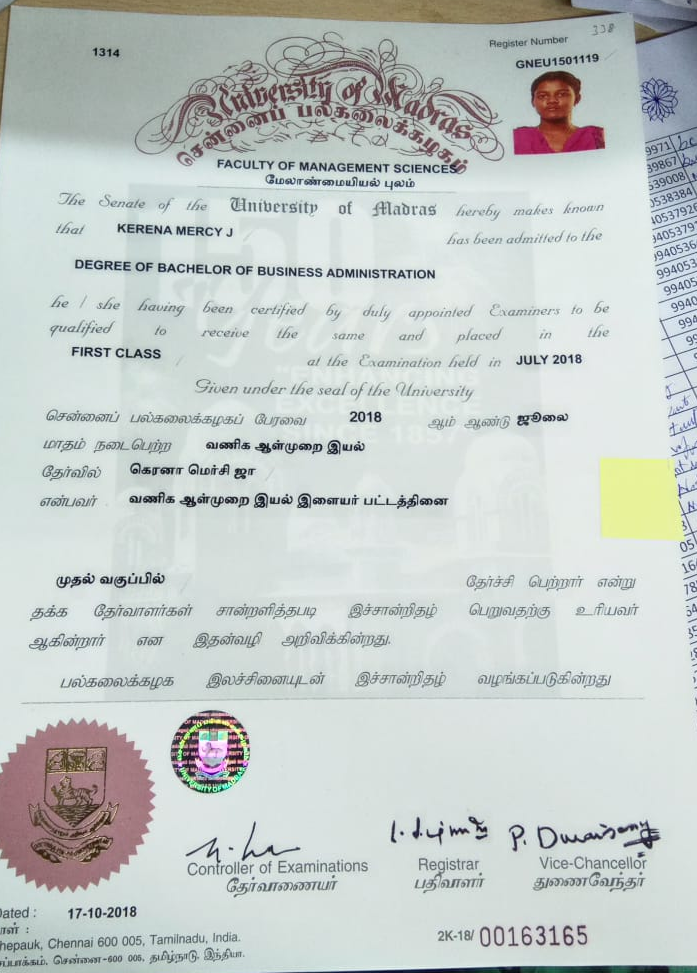 338
1314
Register Number
GNEU1501119
University of Madras
சென்னைப் பல்கலைக்கழகம்
FACULTY OF MANAGEMENT SCIENCES
மேலாண்மையியல் புலம்
The Senate of the University of Madras hereby makes known
that KERENA MERCY J has been admitted to the
DEGREE OF BACHELOR OF BUSINESS ADMINISTRATION
he / she having been certified by duly appointed Examiners to be
qualified to receive the same and placed in the
FIRST CLASS at the Examination held in JULY 2018
Given under the seal of the University
சென்னைப் பல்கலைக்கழகப் பேரவை 2018 ஆம் ஆண்டு ஜூலை
மாதம் நடைபெற்ற வணிக ஆள்முறை இயல்
தேர்வில் கெரனா மெர்சி ஜா
என்பவர் வணிக ஆள்முறை இயல் இளையர் பட்டத்தினை
முதல் வகுப்பில் தேர்ச்சி பெற்றார் என்று
தக்க தேர்வாளர்கள் சான்றளித்தபடி இச்சான்றிதழ் பெறுவதற்கு உரியவர்
ஆகின்றார் என இதன்வழி அறிவிக்கின்றது.
பல்கலைக்கழக இலச்சினையுடன் இச்சான்றிதழ் வழங்கப்படுகின்றது
Controller of Examinations
தேர்வாணையர்
Registrar
பதிவாளர்
P. Duraisamy
Vice-Chancellor
துணைவேந்தர்
Dated : 17-10-2018
நாள் :
Chepauk, Chennai 600 005, Tamilnadu, India.
சேப்பாக்கம், சென்னை-600 005, தமிழ்நாடு, இந்தியா.
2K-18/ 00163165